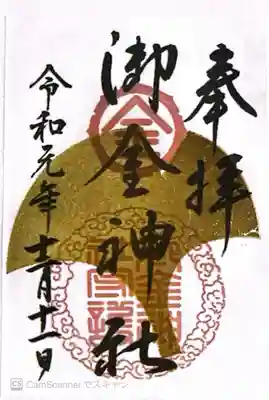 奉拝
御金神社
令和元年十二月十一日
CS CamScanner でスキャン